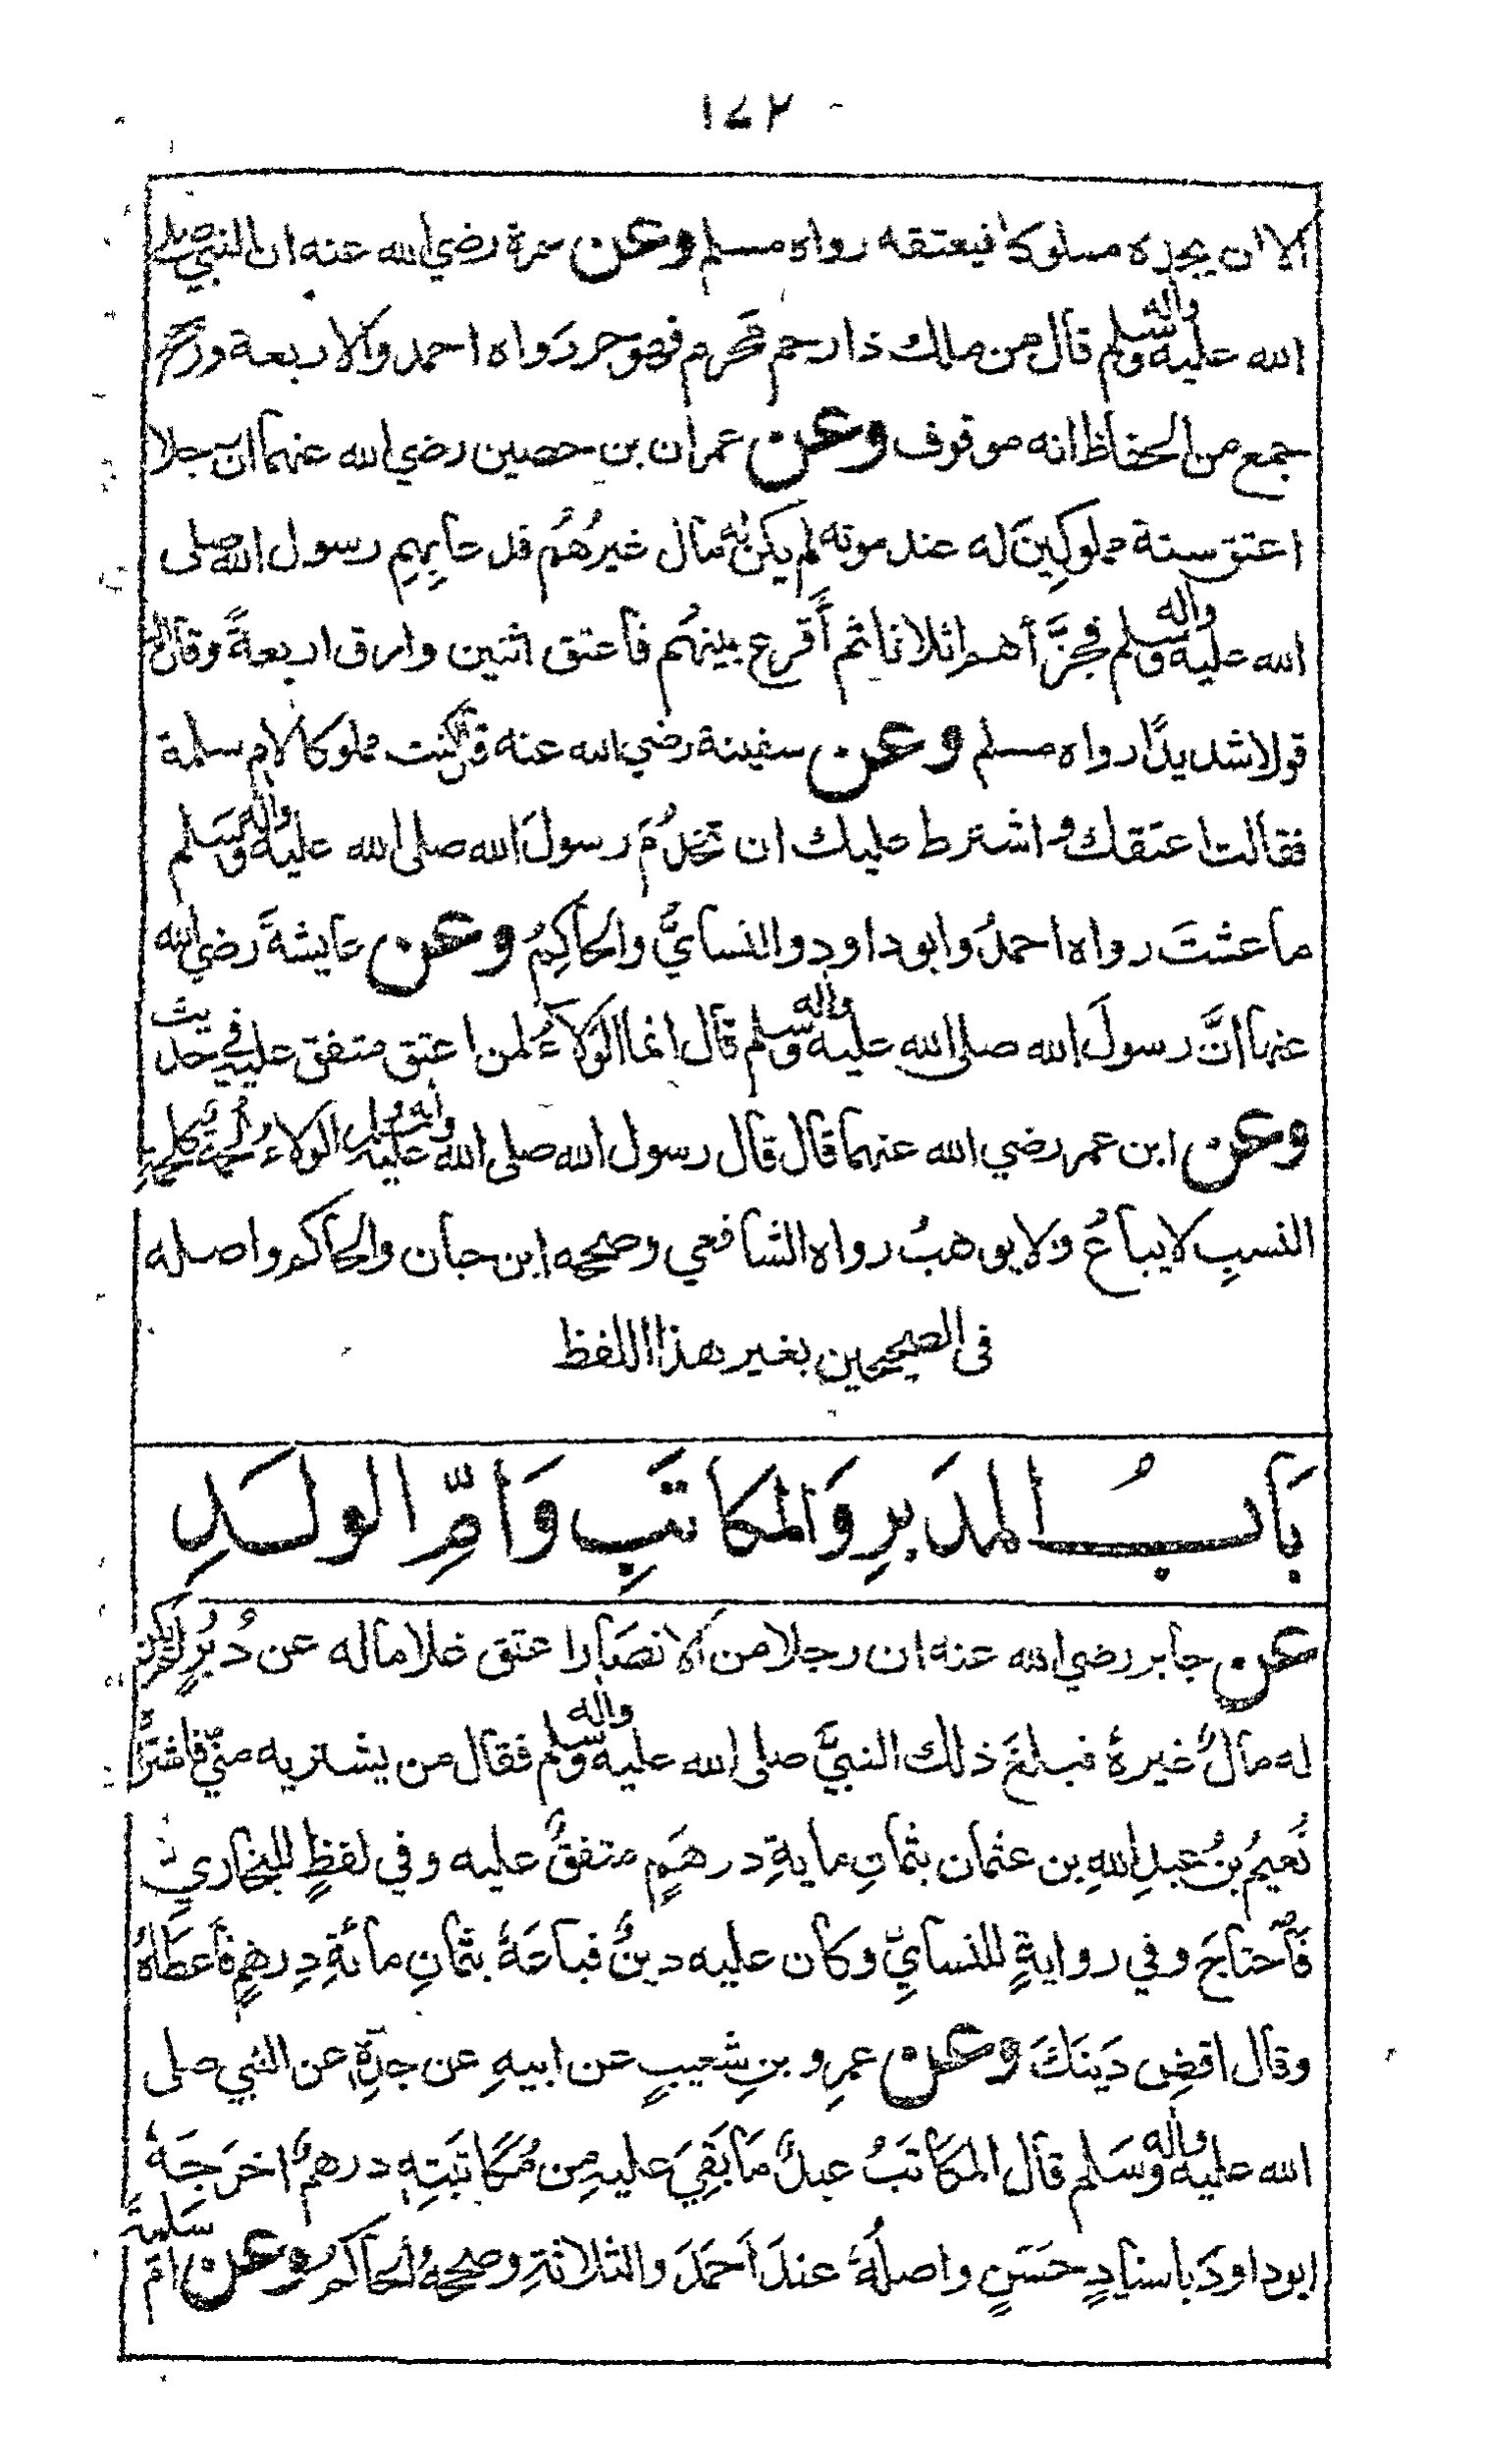 ١٤٢
الا ان يجده مملوكا فيعتقه رواه مسلم وعن سمرة رضي الله عنه ان النبي صلى
الله عليه واله وسلم قال من ملك ذا رحم مَحْرم فهو حر رَواه احمد والاربعة ورجح
جمع من الحفاظ انه موقوف وعن عمران بن حصين رضي الله عنهما ان رجلا
اعتق ستة مملوكِينَ له عند موته لم يكن له مال غيرُهُم فدعا بِهِم رسول الله صلى
الله عليه واله وسلم فجزَّأهم اثلاثا ثم أَقرع بينهُم فاعتق اثنين وارق اربعةً وقال له
قولا شديدًا رواه مسلم وعن سفينة رضي الله عنه قال كنت مملوكا لام سلمة
فقالت اعتقك واشترط عليك ان تخدُمَ رسولَ الله صلى الله عليه واله وسَلم
ما عشتَ رواه احمدُ وابوداود والنسايُّ والحاكِمُ وعن عايشةَ رضي الله
عنها انَّ رسولَ الله صلى الله عليه واله وسلم قال انما الوَلاءُ لمن اعتق متفق عليه في حديث
وعن ابن عمر رضي الله عنهما قال قال رسول الله صلى الله عليه واله وسلم الولاءُ لُحمةٌ كلحمةِ
النسبِ لا يباعُ ولا يوهبُ رواه الشافعي وصححه ابن حبان والحاكم واصله
في الصحيحين بغير هذا اللفظ
بَابُ المدَبرِ وَالمكاتَبِ وَامِّ الولَدِ
عن جابر رضي الله عنه ان رجلا من الانصَار اعتق غلاما له عن دُبُرٍ لم يكن
له مالٌ غيرهُ فبلغَ ذلك النبيَّ صلى الله عليه واله وسلم فقال من يشتريه منيّ فاشتراهُ
نُعيمُ بنُ عبدِ اللهِ بن عثمان بثمانِ مايةِ درهَمٍ متفقٌ عليه وفي لفظٍ للبخاريِّ
فَاحتاجَ وفي روايةٍ للنسايِّ وكان عليه دينٌ فباعَهُ بثمانِ مائةِ دِرهمٍ فَاَعطَاهُ
وقال اقضِ دَينَكَ وعن عمرِو بنِ شعيبٍ عن ابيهِ عن جدِّهِ عن النبي صلى
الله عليه واله وسَلم قال المكاتَبُ عبدٌ مَا بَقِيَ عليهِ مِن مُكَاتَبتِهِ درهمٌ اخرَجَهُ
ابوداودَ باسنادٍ حسَنٍ واصلُهُ عندَ اَحمَدَ والثلاثةِ وصححهُ الحاكمُ وعن امِّ سَلمةَ